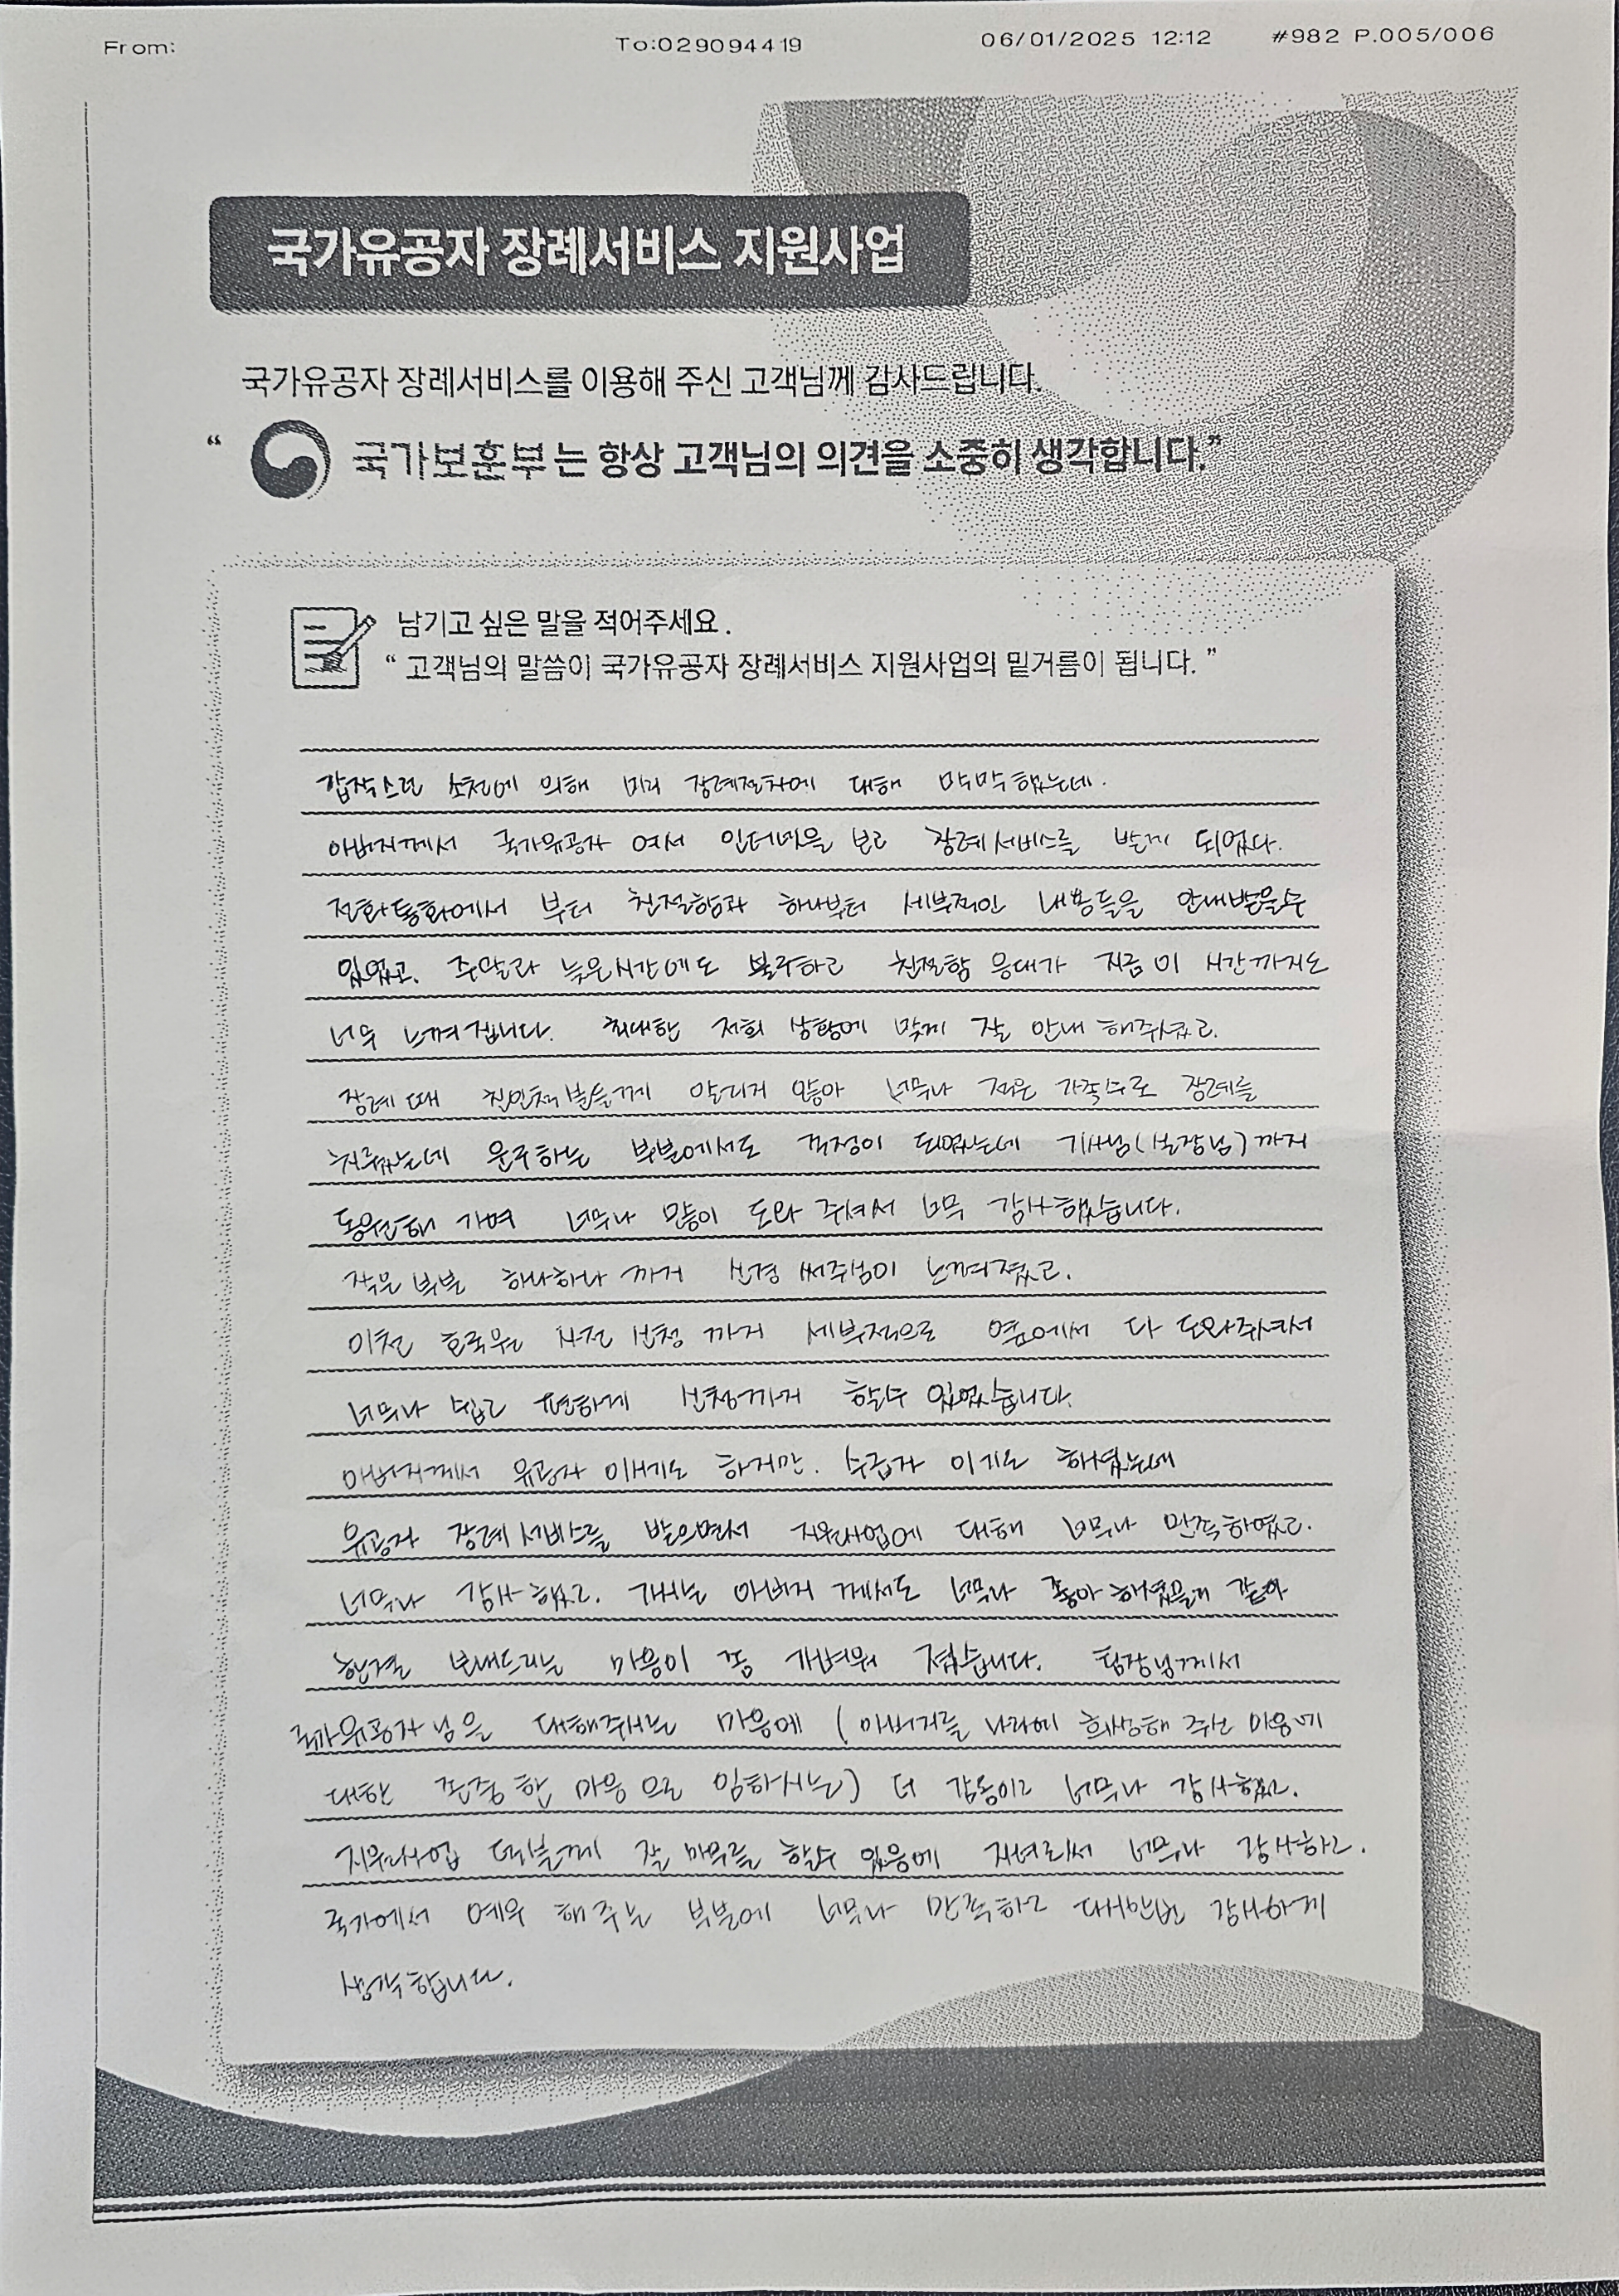 From: To:029094419 06/01/2025 12:12 #982 P.005/006
국가유공자 장례서비스 지원사업
국가유공자 장례서비스를 이용해 주신 고객님께 감사드립니다.
“ 국가보훈부는 항상 고객님의 의견을 소중히 생각합니다.”
남기고 싶은 말을 적어주세요.
“ 고객님의 말씀이 국가유공자 장례서비스 지원사업의 밑거름이 됩니다. ”
갑작스런 소천에 의해 미리 장례절차에 대해 막막했는데.
아버지께서 국가유공자 여서 인터넷을 보고 장례서비스를 받게 되었다.
전화통화에서 부터 친절함과 하나부터 세부적인 내용들을 안내받을수
있었고. 주말과 늦은시간에도 불구하고 친절함 응대가 지금 이 시간까지도
너무 느껴집니다. 최대한 저희 상황에 맞게 잘 안내 해주셨고.
장례 때 친인척분들께 알리지 않아 너무나 적은 가족수로 장례를
치뤘는데 운구하는 부분에서도 걱정이 되었는데 기사님(실장님)까지
동원해 가며 너무나 많이 도와 주셔서 너무 감사했습니다.
작은 부분 하나하나 까지 신경 써주심이 느껴졌고.
이천 호국원 사전 신청 까지 세부적으로 옆에서 다 도와주셔서
너무나 쉽고 편하게 신청까지 할수 있었습니다.
아버지께서 유공자 이시기도 하지만. 수급자 이기도 하셨는데
유공자 장례서비스를 받으면서 지원사업에 대해 너무나 만족하였고.
너무나 감사했고. 가시는 아버지 께서도 너무나 좋아하셨을거 같아
한결 보내드리는 마음이 좀 가벼워 졌습니다. 팀장님께서
국가유공자님을 대해주시는 마음에 ( 아버지를 나라에 희생해 주신 마음에
대한 존중한 마음으로 임하시는) 더 감동이고 너무나 감사했고.
지원사업 덕분에 잘 마무리를 할수 있음에 자녀로써 너무나 감사하고.
국가에서 예우 해주는 부분에 너무나 만족하고 다시한번 감사하게
생각합니다.